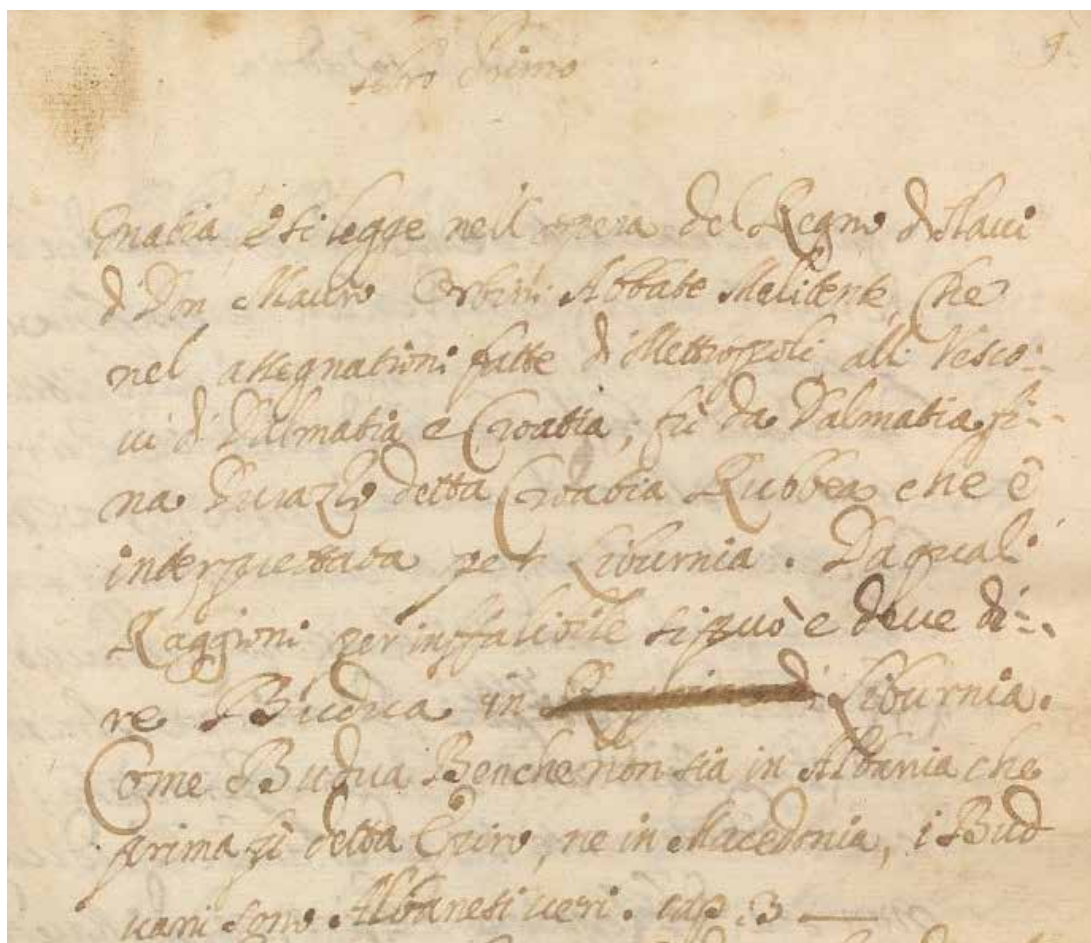 Libro Primo
9.
matia, e si legge nell opera del Regno di Slaui
di Don Mauro Orbini Abbate Melitense, che
nel assegnationi fatte di Mettropoli, alli Vesco=
ui di Dalmatia e Croatia, fù da Dalmatia fi=
na Durazzo detta Croatia Rubbea che è
interprettata per Liburnia. Da quali
Raggioni per inffalibile si può e deue di=
re Budua in Liburnia.
Come Budua Benche non sia in Albania che
prima fù detta Epiro, ne in Macedonia, i Bud
uani sono Albanesi ueri. cap: 3